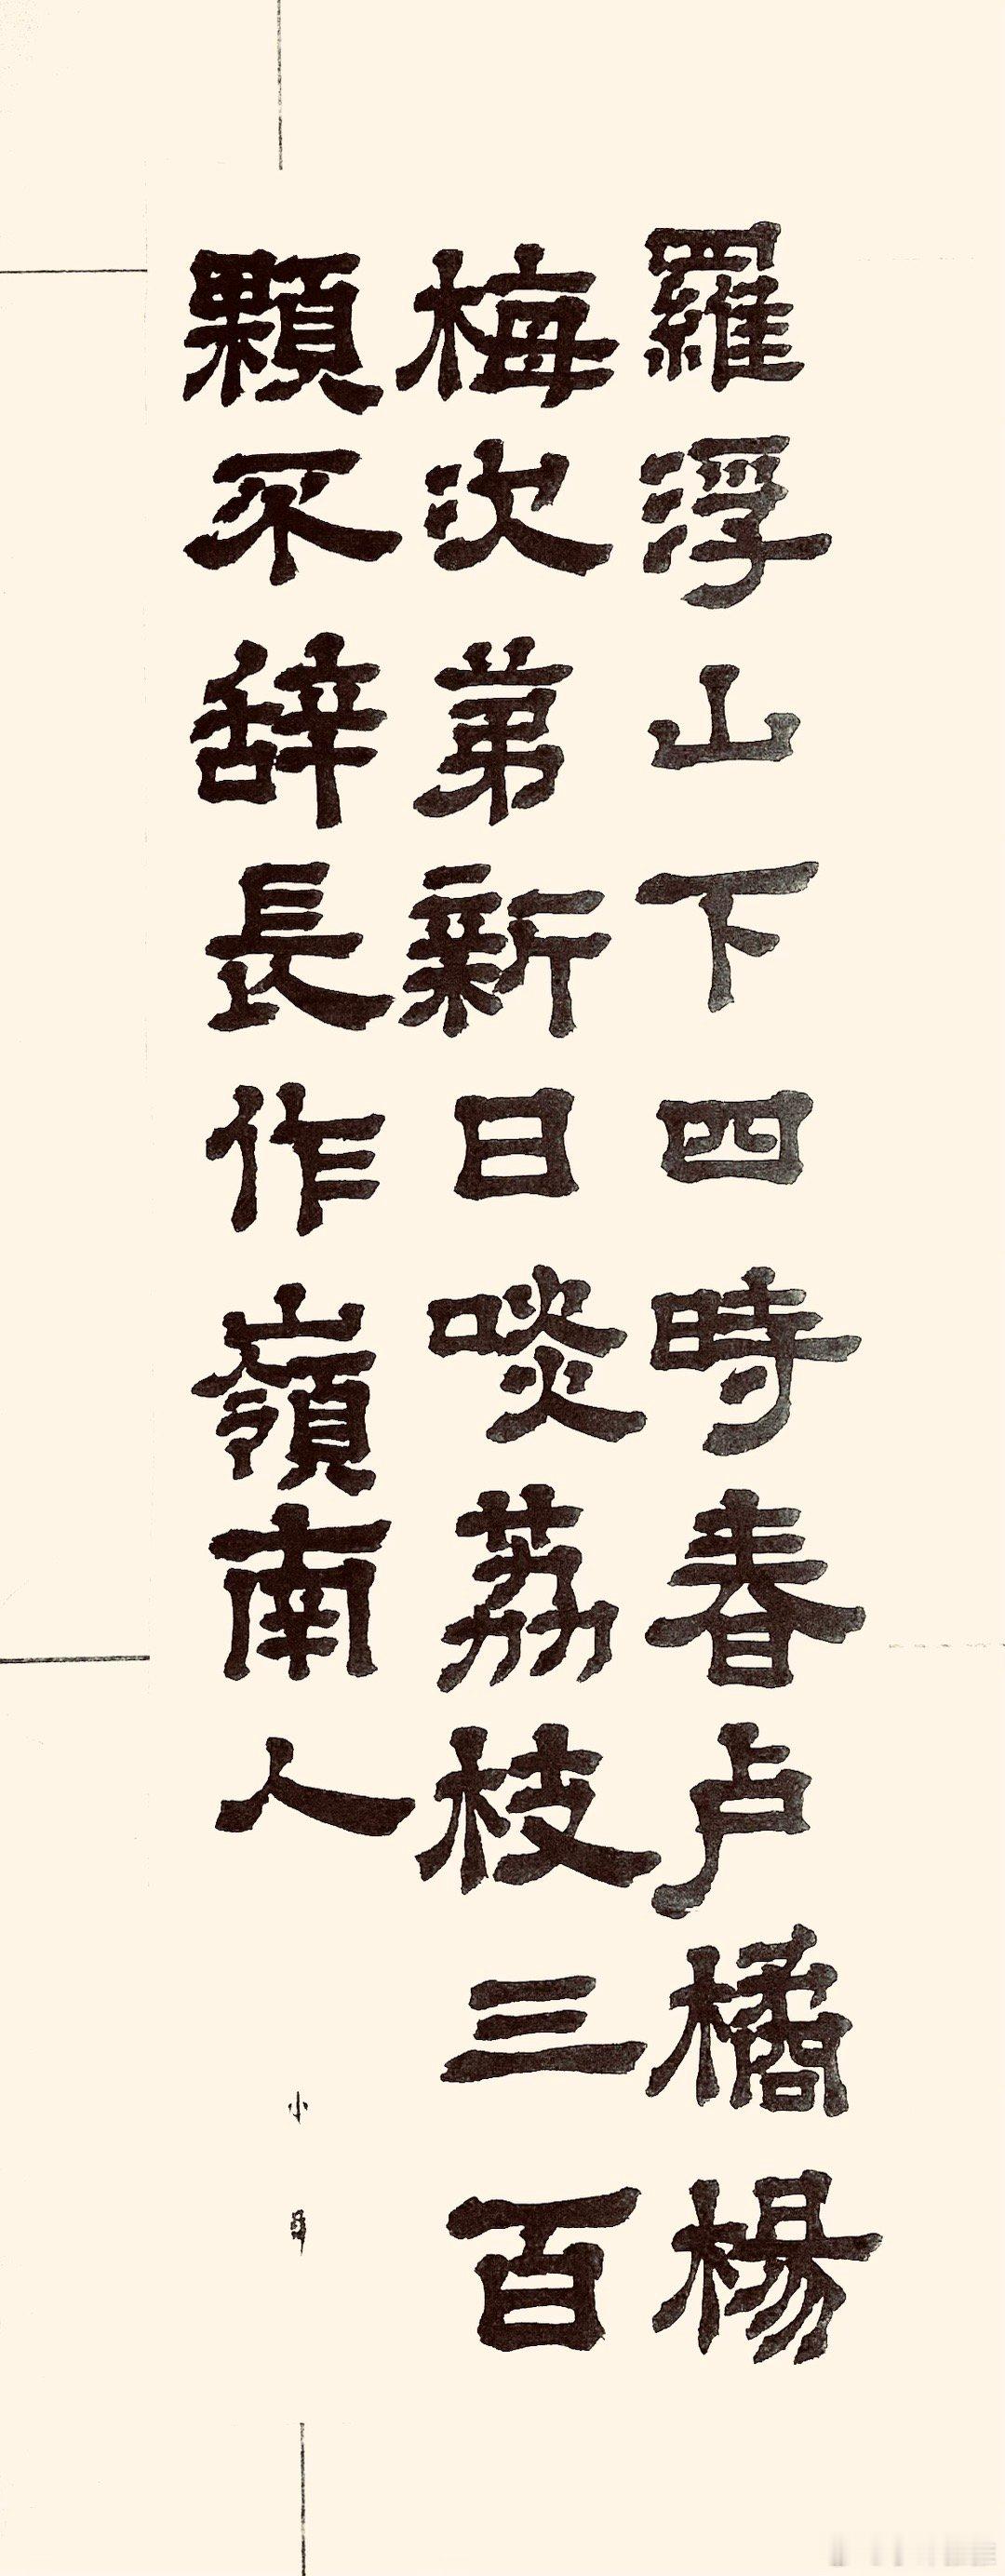 羅浮山下四時春卢橘楊
梅次苐新日啖荔枝三百
顆不辭長作嶺南人
小